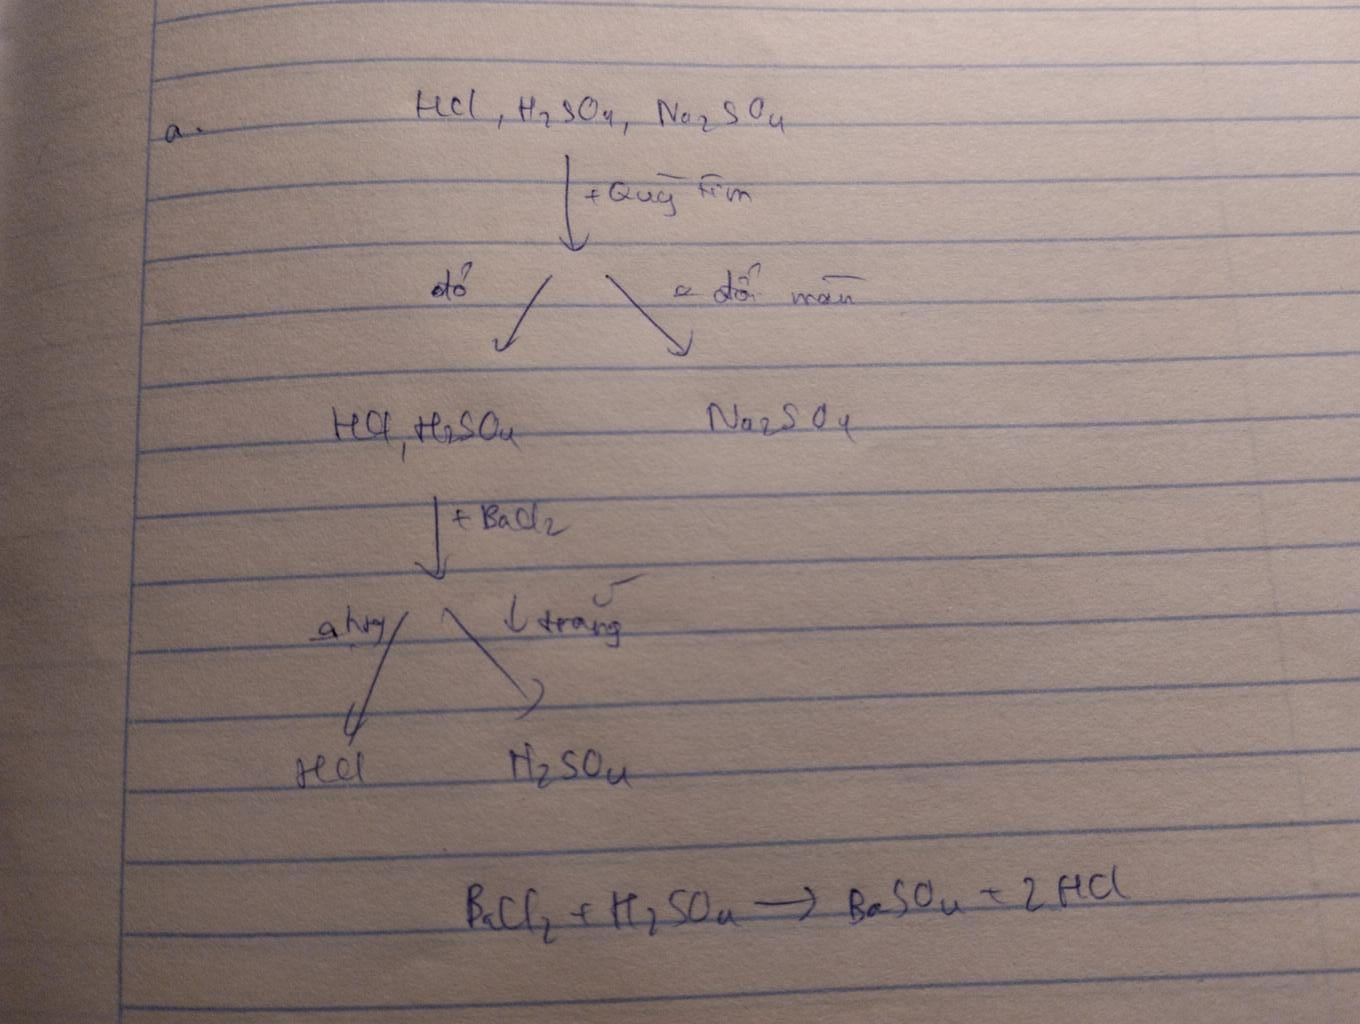 a. HCl, H₂SO₄, Na₂SO₄
+ Quỳ tím
đỏ
đổi màu
HCl, H₂SO₄ Na₂SO₄
+ BaCl₂
↓ trắng
HCl H₂SO₄
BaCl₂ + H₂SO₄ → BaSO₄ + 2HCl